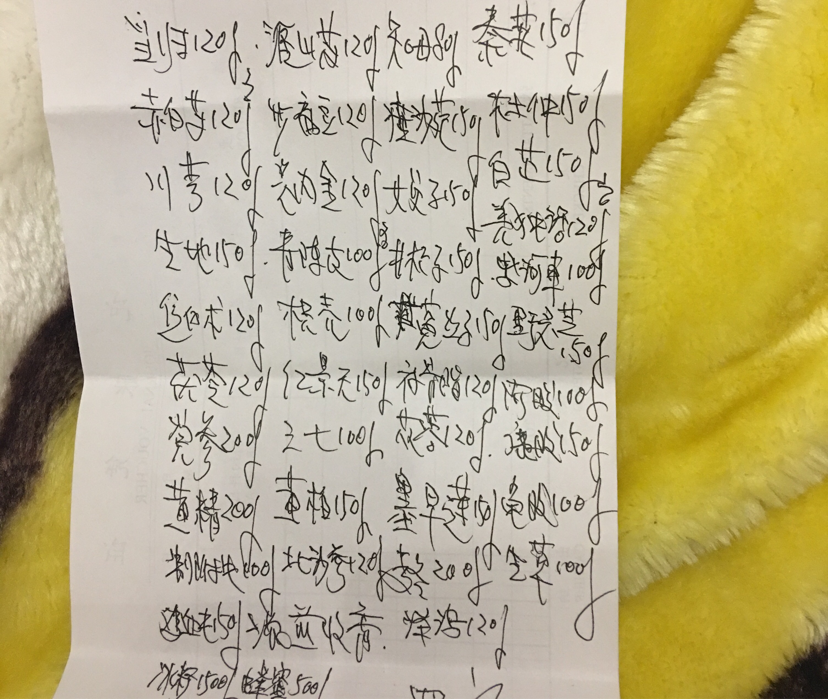 当归120g. 酒山萸120g 知母80g 秦艽150g
赤白芍各120g 炒扁豆120g 淫羊藿150g 杜仲150g
川芎120g 鸡内金120g 女贞子150g 白芷150g
生地150g. 青陈皮各100g 枸杞子150g. 羌独活各120g
炒白术120g 枳壳100g 菟丝子150g 紫河车100g
茯苓120g 红景天150g 补骨脂120g 灵芝150g
党参200g 三七100g 120g. 阿胶100g
黄精200g 黄柏150g 墨旱莲150g 鹿胶150g
制附块100g 北沙参120g 200g 龟胶100g
150g 浓煎收膏. 泽泻120g 生草100g
冰糖1500g 蜂蜜500g